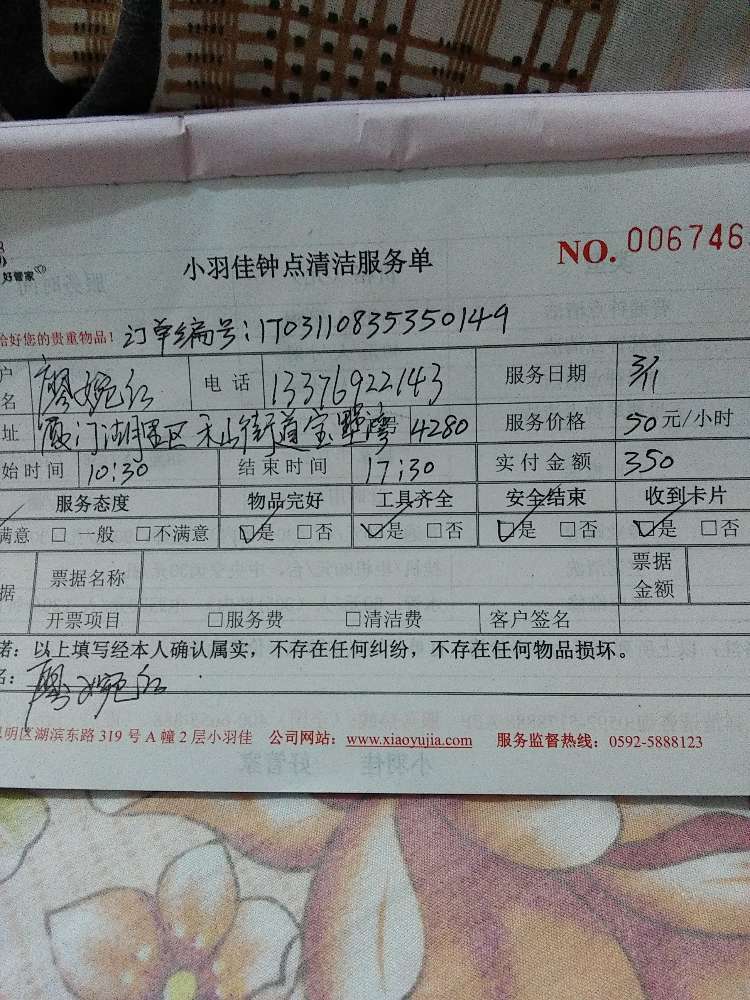 NO. 006746
好管家
小羽佳钟点清洁服务单
恰好您的贵重物品! 订单编号:1703110835350149
户名 廖婉红 电话 13376922143 服务日期 3/11
址 厦门湖里区禾山街道宝墅湾 4280 服务价格 50元/小时
始时间 10:30 结束时间 17:30 实付金额 350
服务态度 物品完好 工具齐全 安全结束 收到卡片
满意 □ 一般 □不满意 ☑是 □否 ☑是 □否 ☑是 □否 ☑是 □否
据 票据名称 票据金额
开票项目 □服务费 □清洁费 客户签名
诺:以上填写经本人确认属实,不存在任何纠纷,不存在任何物品损坏。
名: 廖婉红
明区湖滨东路 319 号 A 幢 2 层小羽佳 公司网站:www.xiaoyujia.com 服务监督热线:0592-5888123